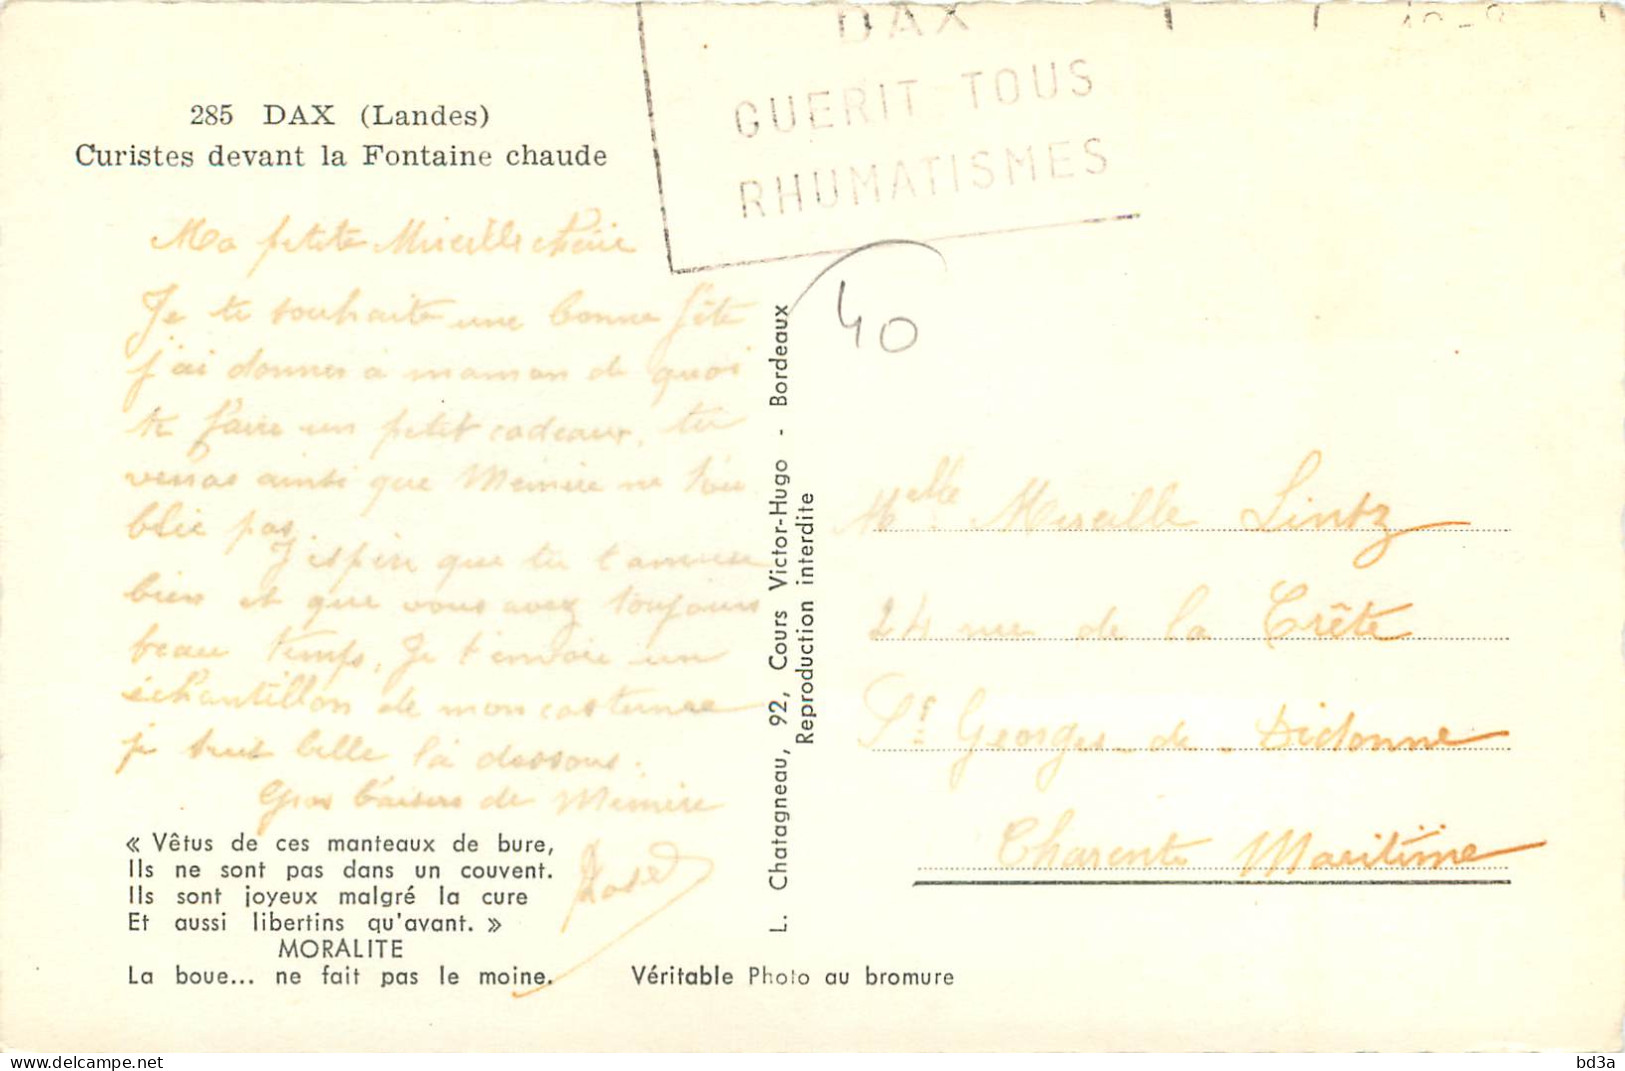 DAX
GUERIT TOUS
RHUMATISMES
285 DAX (Landes)
Curistes devant la Fontaine chaude
Ma petite Mireille chérie
Je te souhaite une bonne fête
j'ai donner a maman de quoi
te faire un petit cadeaux, tu
verras ainsi que Mémère ne t'ou
blie pas.
J'espère que tu t'amuse
bien et que vous avez toujours
beau temps, Je t'envoie un
échantillon de mon costume
je suis belle là dessous.
Gros baisers de Mémère
« Vêtus de ces manteaux de bure,
Ils ne sont pas dans un couvent.
Ils sont joyeux malgré la cure
Et aussi libertins qu'avant. »
MORALITE
La boue... ne fait pas le moine.
Véritable Photo au bromure
L. Chatagneau, 92, Cours Victor-Hugo - Bordeaux
Reproduction interdite
40
Melle Mireille Lintz
24 rue de la Crête
St Georges-de-Didonne
Charente Maritime
www.delcampe.net
bd3a